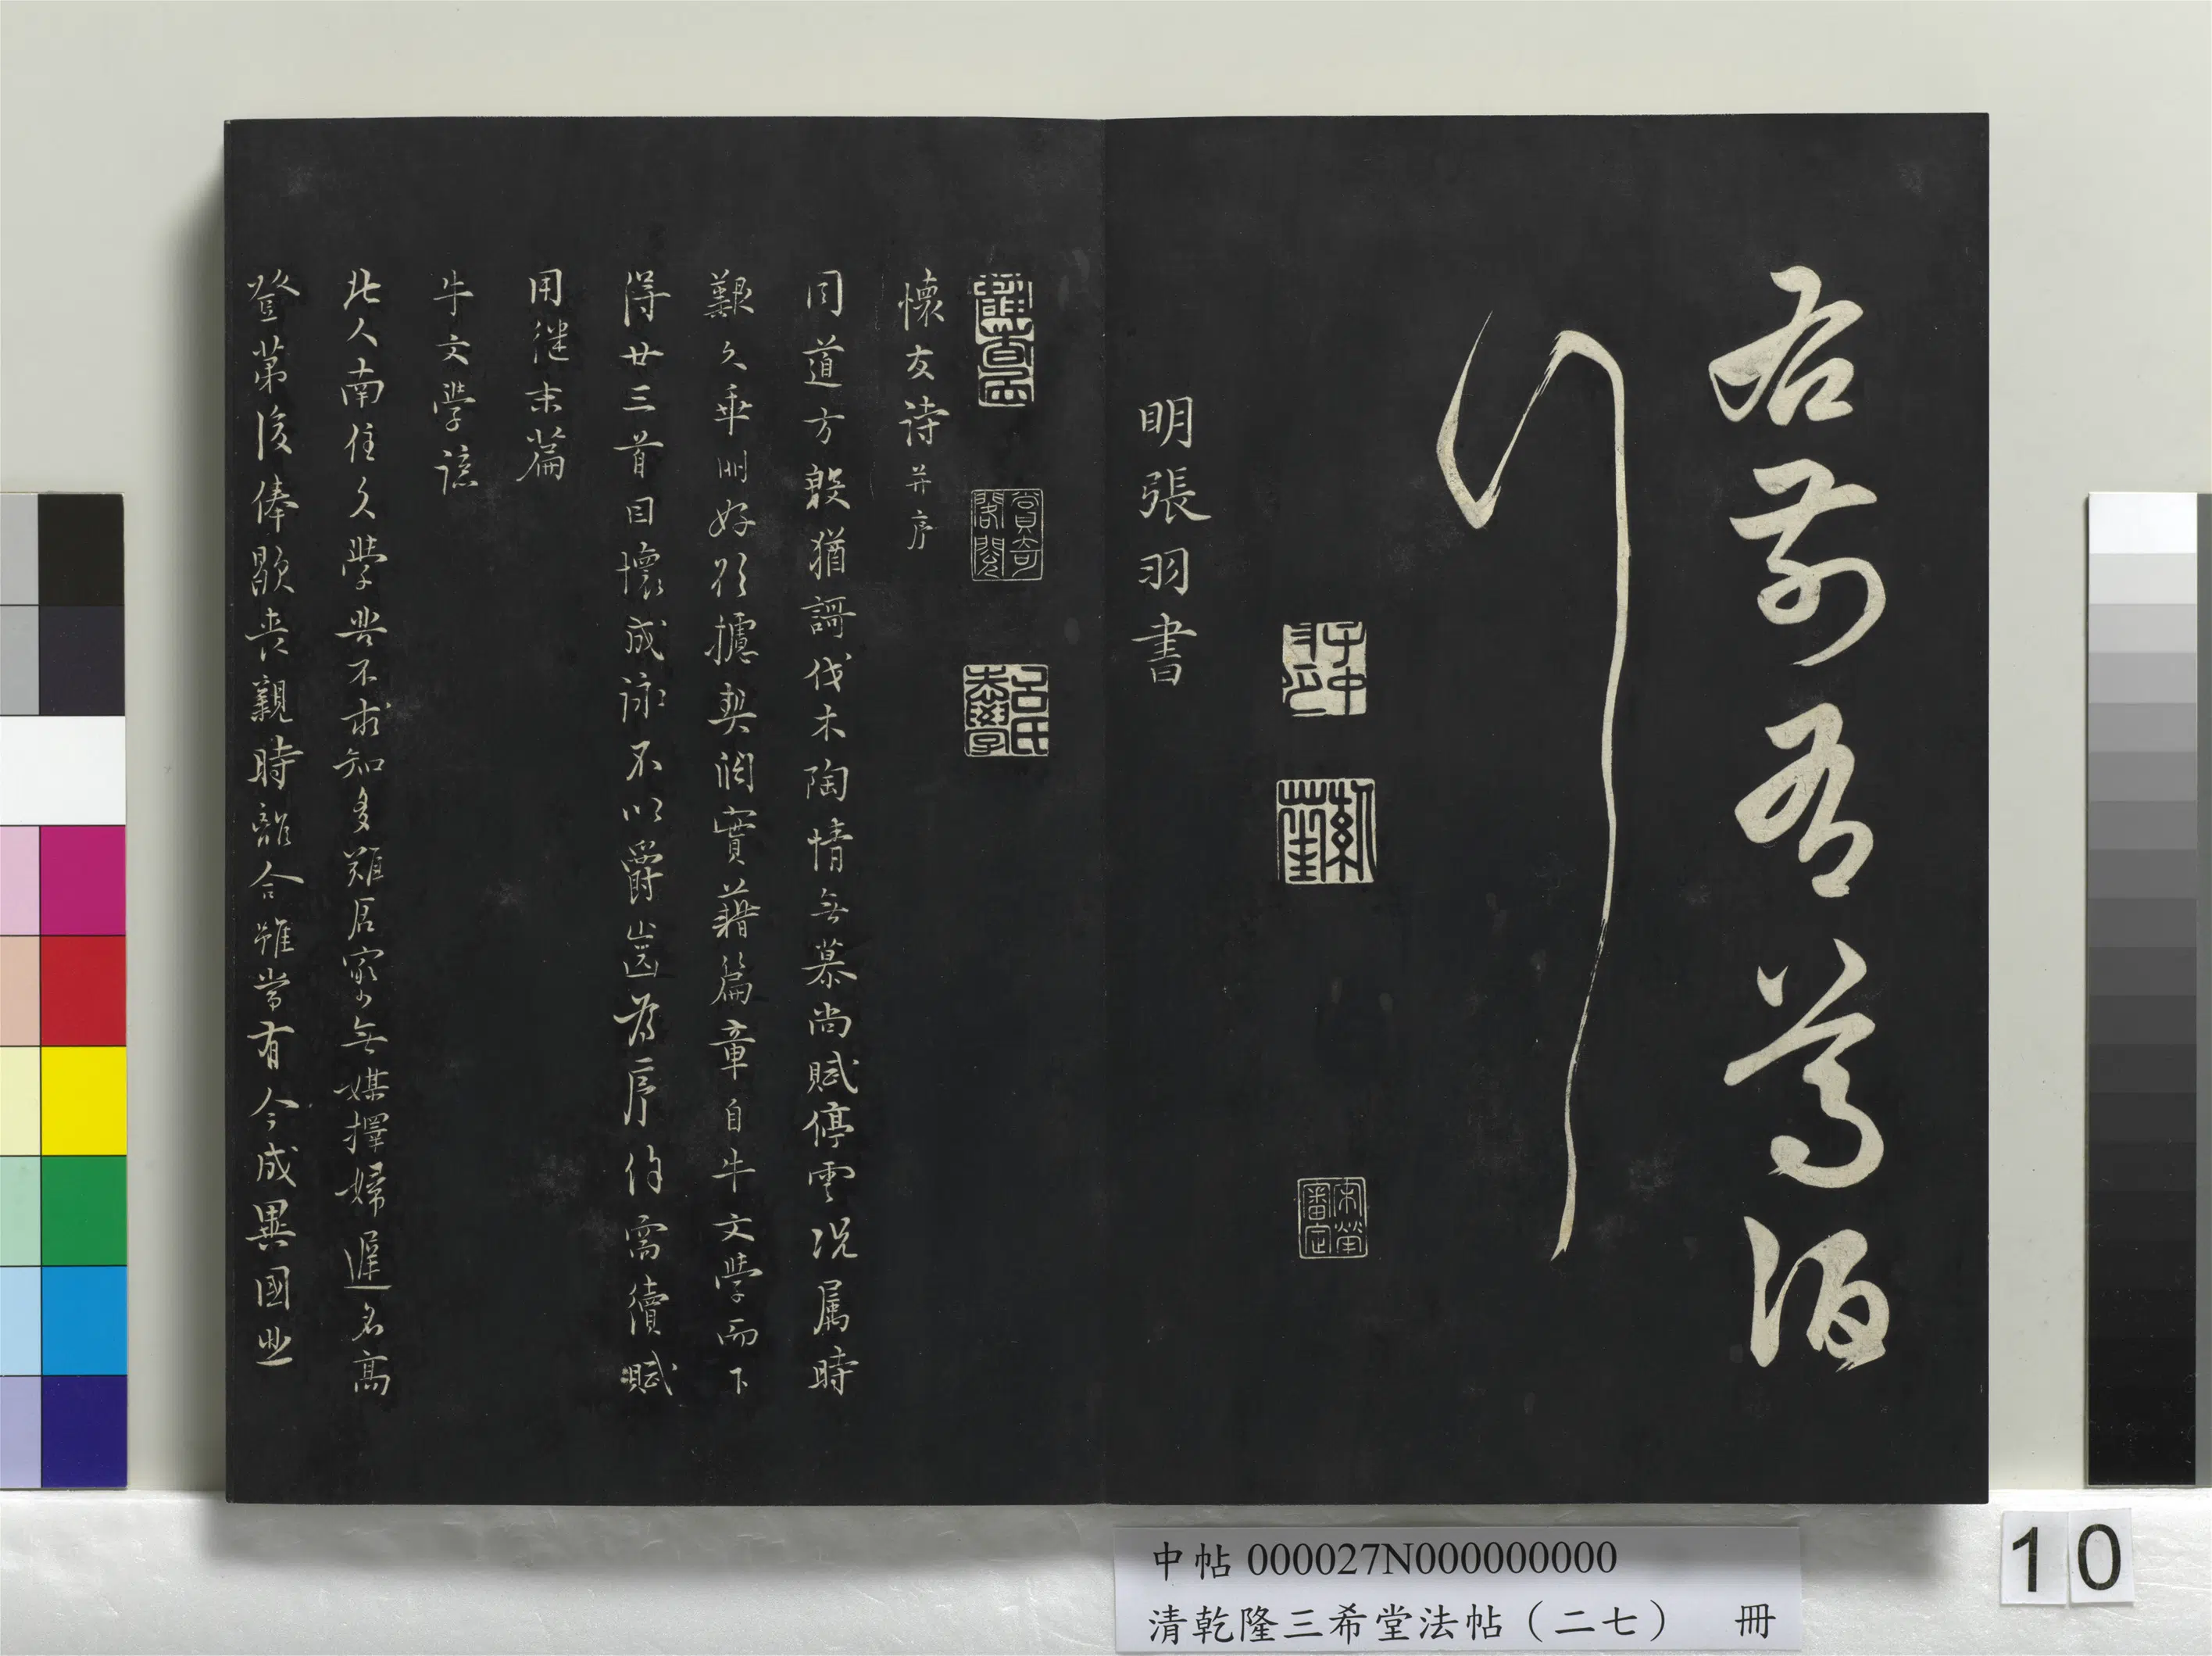 右前有尊酒
行
宋犖審定
明張羽書
呂氏太學
懷友詩并序
同道方殷猶謌伐木陶情無慕尚賦停雲况属時
艱久乖朋好欲攄契闊實藉篇章自牛文學而下
得廿三首因懷成詠不以爵齒為序需續賦
用繼末篇
牛文學諒
北人南住久學豈不求知多難居家少無媒擇婦遲名高
登第後俸歇喪親時離合雖常有今成異國悲
中帖 000027N000000000
清乾隆三希堂法帖（二七） 冊
10